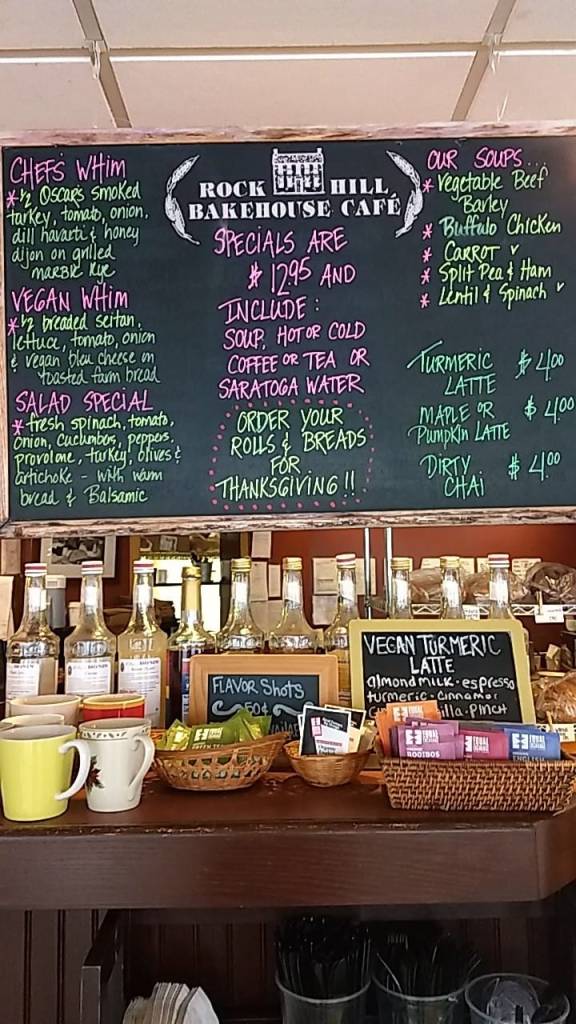 CHEF'S WHIM
* ½ OSCAR'S Smoked
turkey, tomato, onion,
dill havarti & honey
dijon on grilled
marble Rye
VEGAN WHIM
* ½ breaded seitan,
lettuce, tomato, onion
& vegan bleu cheese on
toasted farm bread
SALAD SPECIAL
* fresh spinach, tomato,
onion, cucumbers, peppers,
provolone, turkey, olives &
artichoke - with warm
bread & Balsamic
ROCK HILL
BAKEHOUSE CAFÉ
SPECIALS ARE
$12.95 AND
INCLUDE:
SOUP, HOT OR COLD
COFFEE OR TEA OR
SARATOGA WATER
ORDER YOUR
ROLLS & BREADS
FOR
THANKSGIVING!!
OUR SOUPS...
* Vegetable Beef
Barley
* Buffalo Chicken
* CARROT v
* Split Pea & Ham
* Lentil & Spinach v
TURMERIC
LATTE $4.00
MAPLE OR
PUMPKIN LATTE $4.00
DIRTY
CHAI $4.00
FLAVOR SHOTS
50¢
VEGAN TURMERIC
LATTE
almondmilk · espresso
turmeric · cinnamon
PINCH
GREEN TEA
EQUAL
EXCHANGE
ROOIBOS
EQUAL
EQUAL
ENGLISH